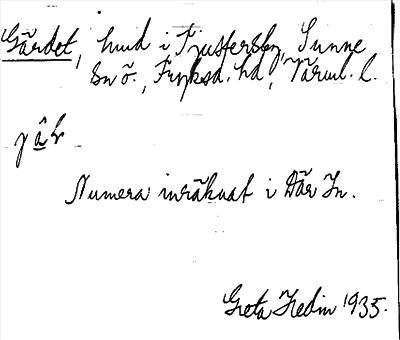 Gärdet, hmd i Tjusfersby, Sunne
sn ö., Fryksd. hd, Värml. l.
yâl
Numera inräknat i Där In.
Greta Hedin 1935.